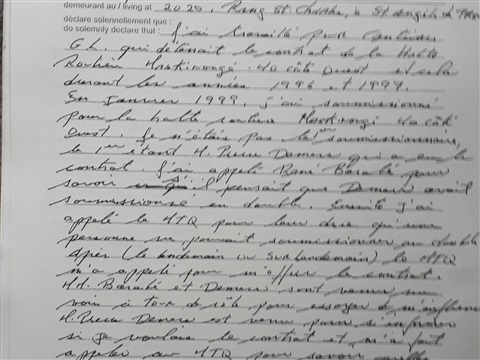 demeurant au / living at 2025, Rang St Charles, à St-
déclare solennellement que :
do solemnly declare that : J'ai travaillé pour
G.L. qui détenait le contrat de la Halte
Routière 40 côté ouest et cela
durant les années 1996 et 1997.
En janvier 1999, j'ai soumissionné
pour la halte routière 40 côté
ouest. Je n'étais pas le 1er soumissionnaire,
le 1er étant M. Demers qui a eu le
contrat. J'ai appelé René Barabé pour
savoir il pensait que Demers avait
soumissionné en double. Ensuite j'ai
appelé le MTQ pour leur dire qu'une
personne ne pouvait soumissionner en double
Après (le lendemain ou surlendemain) le MTQ
m'a appelé pour m'offrir le contrat.
MM. Barabé et Demers sont venus me
voir à tour de rôle pour essayer de
M. Demers est venu pour
si je voulais le contrat et m'a fait
appeler au MTQ pour savoir